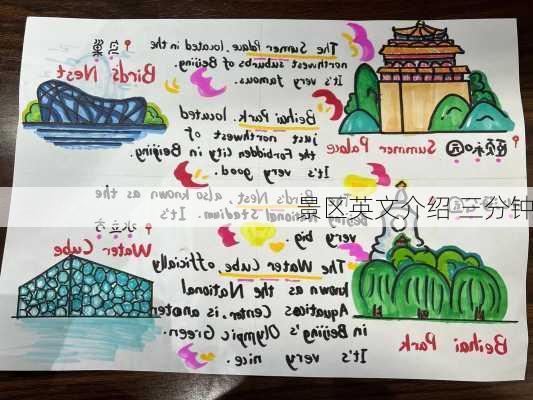 鸟巢
Bird's Nest
The Sumer Palaue, located in the
northwest suburbs of Beijing.
It's very famous.
颐和园
Summer Palace
Beihai Park, located
just northwest of
the Forbidden City in Beijing.
It's very good.
Bird's Nest, also known as the
National Stadium. It's
very big.
景区英文介绍-三分钟
水立方
Water Cube
The Water Cube officially
known as the National
Aquatics Center, is
in Beijing's Olympic Green.
It's very nice.
Beihai Park